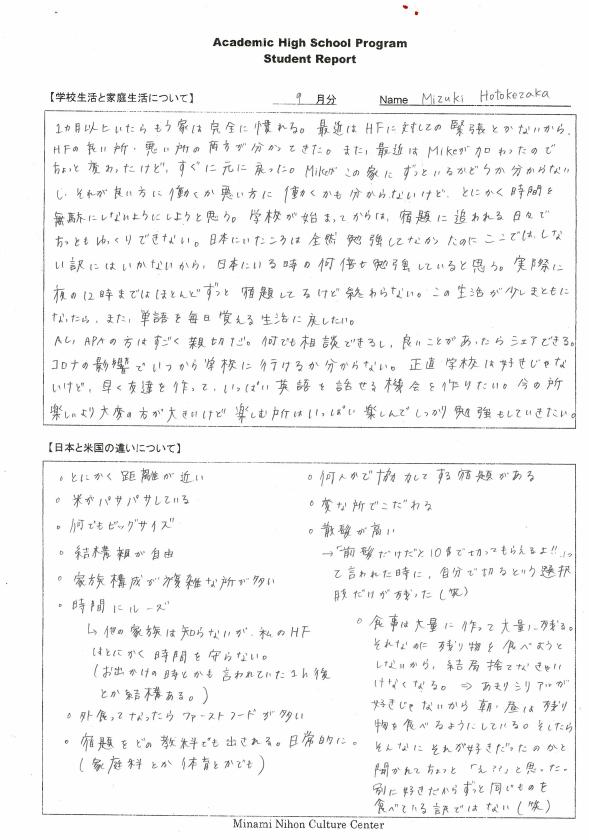 Academic High School Program
Student Report
【学校生活と家庭生活について】 9 月分 Name Mizuki Hotokezaka
1カ月以上いたらもう家は完全に慣れる。最近はHFに対しての緊張とかないから、
HFの良い所・悪い所の両方が分かってきた。また、最近はMikeが加わったので
ちょっと変わったけど、すぐに元に戻った。Mikeがこの家にずっといるかどうか分からない
し、それが良い方に働くか悪い方に働くかも分からないけど、とにかく時間を
無駄にしないようにしようと思う。学校が始まってからは、宿題に追われる日々で
ちっともゆっくりできない。日本にいたころは全然勉強してなかったのにここでは、しな
い訳にはいかないから、日本にいる時の何倍も勉強していると思う。実際に
夜の12時まではほとんどずっと宿題してるけど終わらない。この生活が少しまともに
なったら、また、単語を毎日覚える生活に戻したい。
ALL APAの方はすごく親切だ。何でも相談できるし、良いことがあったらシェアできる。
コロナの影響でいつから学校に行けるか分からない。正直学校は好きじゃな
いけど、早く友達を作って、いっぱい英語を話せる機会を作りたい。今の所
楽しいより大変の方が大きいけど楽しむ所はいっぱい楽しんでしっかり勉強もしていきたい。
【日本と米国の違いについて】
○ とにかく距離が近い
○ 米がパサパサしている
○ 何でもビッグサイズ
○ 結構親が自由
○ 家族構成が複雑な所が多い
○ 時間にルーズ
↳ 他の家族は知らないが、私のHF
はとにかく時間を守らない。
(お出かけの時とかも言われていた1h後
とか結構ある。)
○ 外食ってなったらファーストフードが多い
○ 宿題をどの教科でも出される。日常的に。
(家庭科とか体育とかでも)
○ 何人かで協力してする宿題がある
○ 変な所でこだわる
○ 散髪が高い
→「前髪だけだと10$で切ってもらえるよ!!」っ
て言われた時に、自分で切るという選択
肢だけが残った(笑)
○ 食事は大量に作って大量に残る。
それなのに残り物を食べようと
しないから、結局捨てなきゃい
けなくなる。⇒あまりシリアルが
好きじゃないから朝・昼は残り
物を食べるようにしている。そしたら
そんなにそれが好きだったのかと
聞かれてちょっと「え??」と思った。
別に好きだからずっと同じものを
食べている訳ではない(笑)
Minami Nihon Culture Center